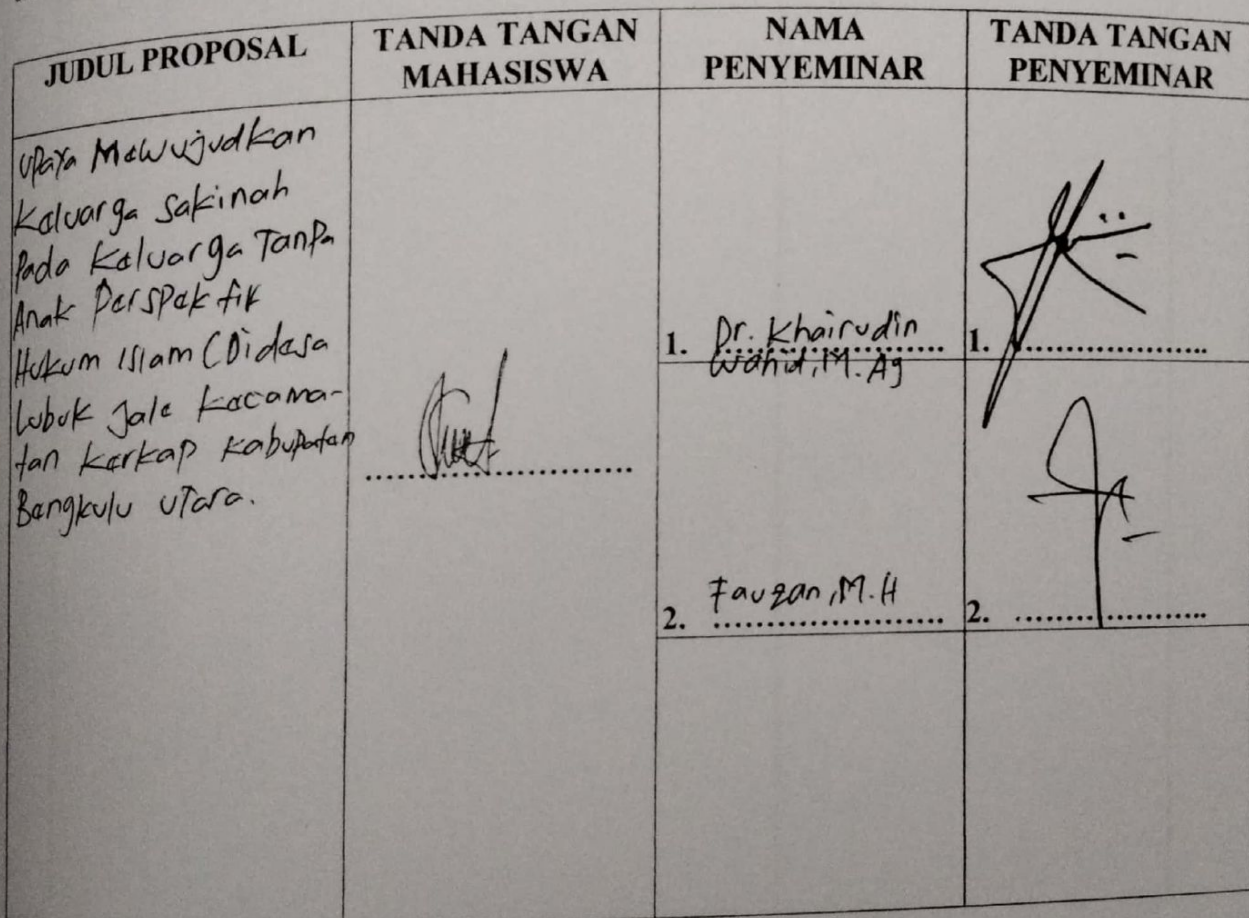 JUDUL PROPOSAL
TANDA TANGAN
MAHASISWA
NAMA
PENYEMINAR
TANDA TANGAN
PENYEMINAR
Upaya Mewujudkan
Keluarga Sakinah
Pada Keluarga Tanpa
Anak Perspektif
Hukum Islam (Didesa
Lubuk Jale Kecama-
tan Kerkap Kabupaten
Bengkulu Utara.
1. Dr. Khairudin
Wahid, M. Ag
1.
2. Fauzan, M.H
2.